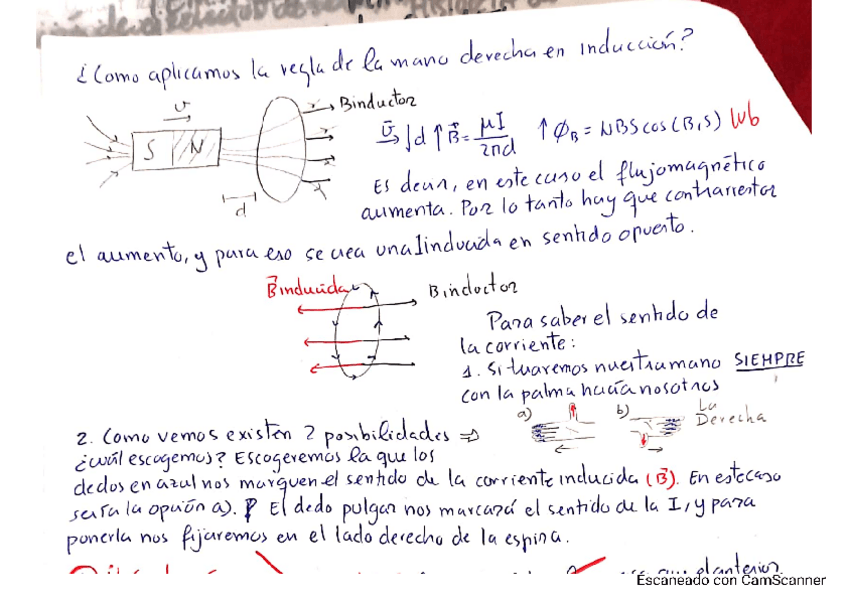 ¿Como aplicamos la regla de la mano derecha en inducción?
v
Binductor
S N
d
v ↓d ↑B = μI / 2πd ↑ϕB = NBS cos(B,S) Wb
Es decir, en este caso el flujo magnético
aumenta. Por lo tanto hay que contrarrestar
el aumento, y para eso se crea una I inducida en sentido opuesto.
Binducida Binductor
Para saber el sentido de
la corriente:
1. Situaremos nuestra mano SIEMPRE
con la palma hacia nosotros
a) b) La
Derecha
2. Como vemos existen 2 posibilidades ⇒
¿cuál escogemos? Escogeremos la que los
dedos en azul nos marquen el sentido de la corriente inducida (B). En este caso
sería la opción a). El dedo pulgar nos marcará el sentido de la I, y para
ponerla nos fijaremos en el lado derecho de la espira.
el anterior.
Escaneado con CamScanner